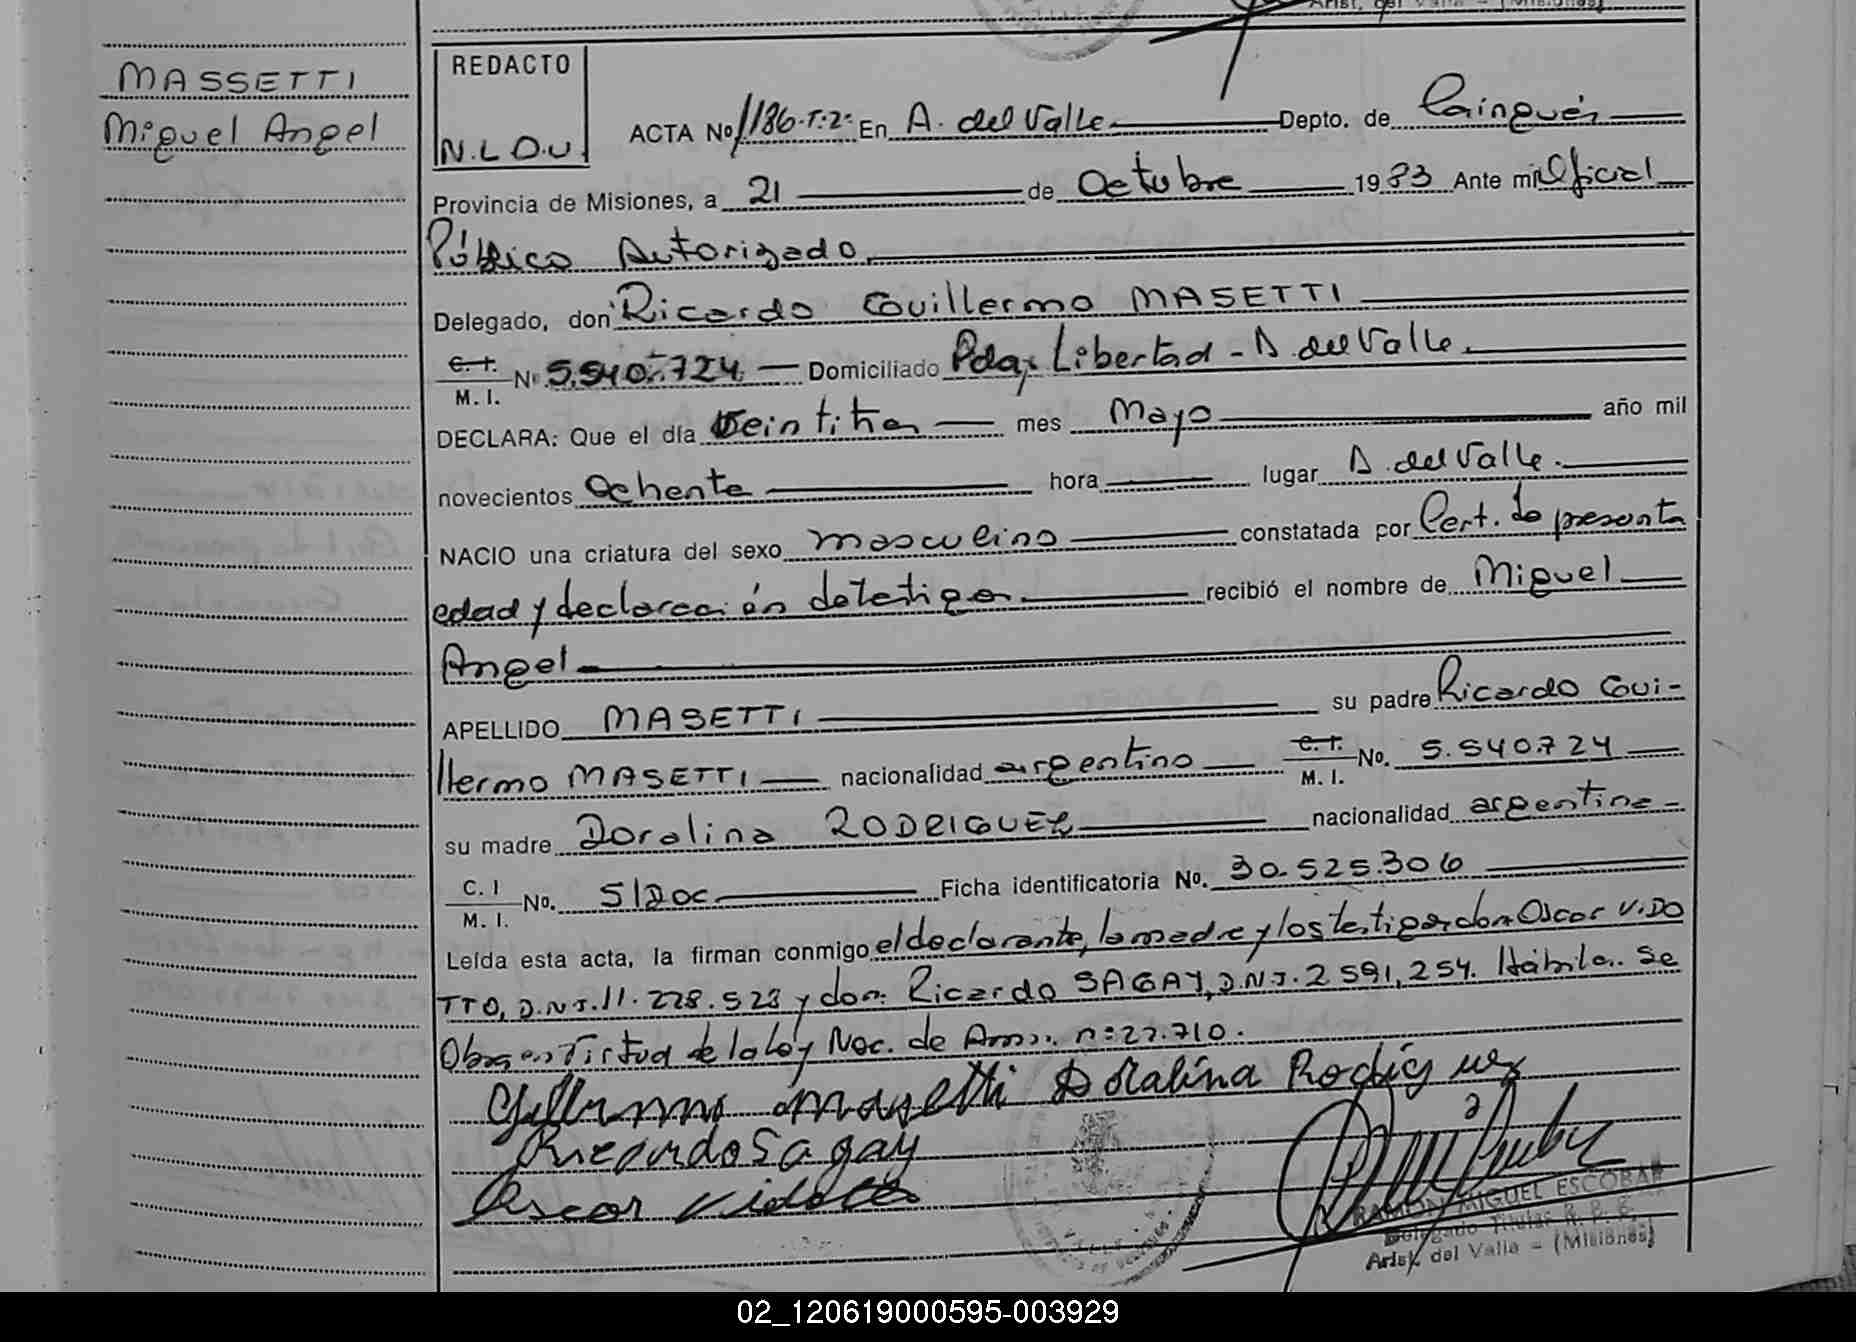 Arist. del Valle - (Misiones)
MASSETTI
Miguel Angel
REDACTO
N.L.D.U.
ACTA No 1186-T:2: En A. del Valle Depto. de Cainguás
Provincia de Misiones, a 21 de Octubre 1983 Ante mi Oficial
Público Autorizado.
Delegado, don Ricardo Guillermo MASETTI
C. I. M. I. No 5.540.724 Domiciliado Pdas. Libertad - A. del Valle.
DECLARA: Que el día Veintitres mes Mayo año mil
novecientos Ochenta hora lugar A. del Valle.
NACIO una criatura del sexo masculino constatada por Cert. de presunta
edad y declaración de testigos. recibió el nombre de Miguel
Angel
APELLIDO MASETTI su padre Ricardo Gui-
llermo MASETTI nacionalidad argentino C. I. M. I. No. 5.540.724
su madre Doralina RODRIGUEZ nacionalidad argentina
C. I M. I. No. S/Doc. Ficha identificatoria No. 30.525.306
Leída esta acta, la firman conmigo el declarante, la madre y los testigos don Oscar VIDO
TTO, D.N.I. 11.228.523 y don: Ricardo SAGAY, D.N.I. 2 591,254. Hábiles. Se
Obra en Virtud de la Ley Nac. de Amn. n: 22.710.
Guillermo Masetti Doralina Rodriguez
Ricardo Sagay
Oscar Vidotto
RAMON MIGUEL ESCOBAR
Delegado Titular R. P. C.
Arist. del Valle - (Misiones)
02_120619000595-003929